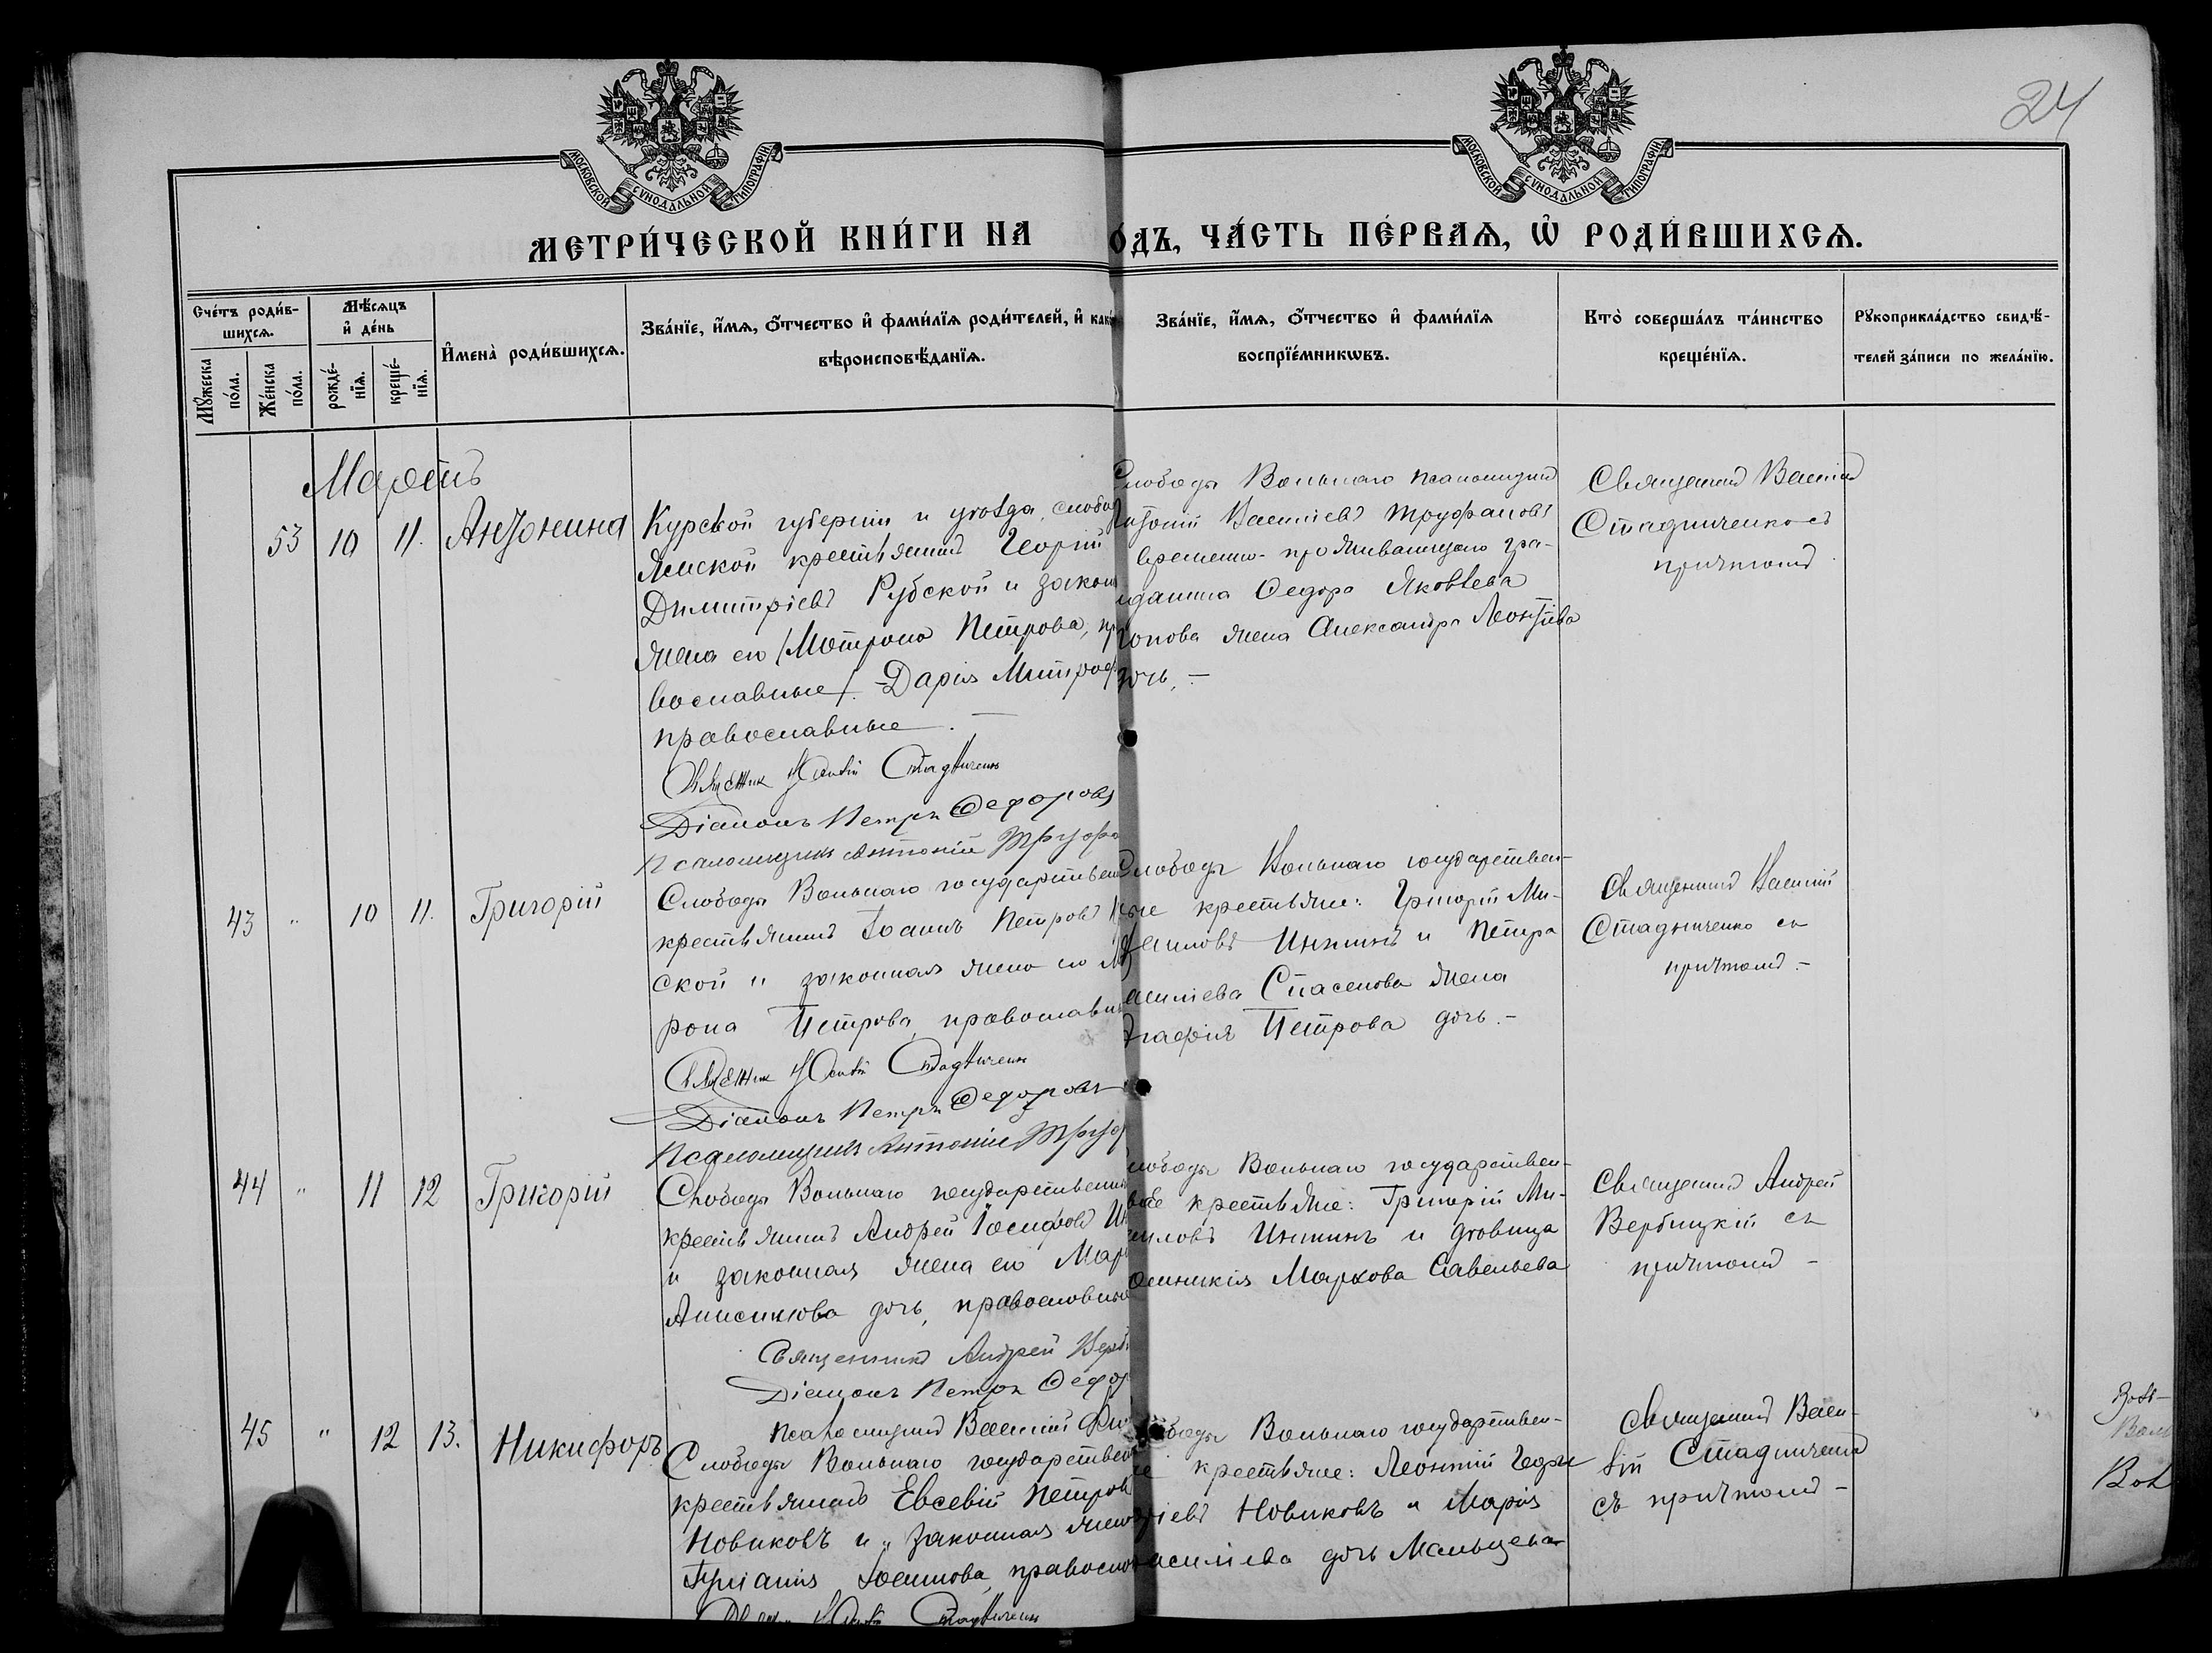 24
МОСКОВСКОЙ СѴНОДАЛЬНОЙ ТИПОГРАФІИ
МОСКОВСКОЙ СѴНОДАЛЬНОЙ ТИПОГРАФІИ
МЕТРИ́ЧЕСКОЙ КНИ́ГИ НА
О́ДЪ, ЧА́СТЬ ПЕ́РВАѦ, Ѡ҆ РОДИ́ВШИХСѦ.
Сче́тъ роди́в-
шихсѧ.
Мꙋ́жеска
по́ла.
Же́нска
по́ла.
Мѣ́сѧцъ
и҆ де́нь
рожде́-
нїѧ.
креще́-
нїѧ.
И҆мена̀ роди́вшихсѧ.
Зва́нїе, и҆́мѧ, ѻ҆́тчество и҆ фами́лїѧ роди́телей, и҆ како́
вѣроисповѣ́данїѧ.
Зва́нїе, и҆́мѧ, ѻ҆́тчество и҆ фами́лїѧ
воспрїе́мникѡвъ.
Кто̀ соверша́лъ та́инство
креще́нїѧ.
Рꙋкоприкла́дство свидѣ́-
телей за́писи по жела́нїю.
Мартъ
53 10 11. Антонина
Курской губерніи и уѣзда, слобод
Ямской крестьянинъ Георгій
Димитріевъ Рубской и закон
жена его (Матрона Петрова, пр
вославные). Дарія Митроф
православные. —
Свящѣнник Василій Стадниченко
Діаконъ Петръ Ѳедоровъ
Псаломщикъ Антоній Труфа
Слободы Вольнаго псаломщикъ
Антоній Васильевъ Труфановъ
временно-проживающаго гра-
жданина Ѳедора Яковлева
Попова жена Александра Леонтьева
дочь, —
Священникъ Василій
Стадниченко съ
причтомъ
43 " 10 11. Григорій
Слободы Вольнаго государствен
крестьянинъ Іоаннъ Петровъ
ской и законная жена его М
рона Петрова, православн
Свящѣнник Василій Стадниченко
Діаконъ Петръ Ѳедоровъ
Псаломщикъ Антоній Труф
Слободы Вольнаго государствен-
ные крестьяне: Григорій Ми-
хаиловъ Инкинъ и Петра
асиліева Спасенова жена
Агафія Петрова дочь. —
Священникъ Василій
Стадниченко съ
причтомъ. —
44 " 11 12 Григорій
Слободы Вольнаго государственн
крестьянинъ Андрей Іосифовъ Ин
и законная жена его Мар
Анисимова дочь, православные
Священникъ Андрей Верб
Діаконъ Петръ Ѳедор
Псаломщикъ Василій
лободы Вольнаго государствен-
ные крестьяне: Григорій Ми-
хаиловъ Инкинъ и дѣвица
Маркова Савельева
Священникъ Андрей
Вербицкій съ
причтомъ —
45 " 12 13. Никифоръ
Слободы Вольнаго государствен
крестьянинъ Евсевій Петров
Новиковъ и законная жена
Іоаннова, православ
Свящѣнник Василій Стадниченко
ободы Вольнаго государствен-
е крестьяне: Леонтій Геор-
гіевъ Новиковъ и Марія
асиліева дочь Мальцева
Священникъ Васи-
лій Стадниченко
съ причтомъ —